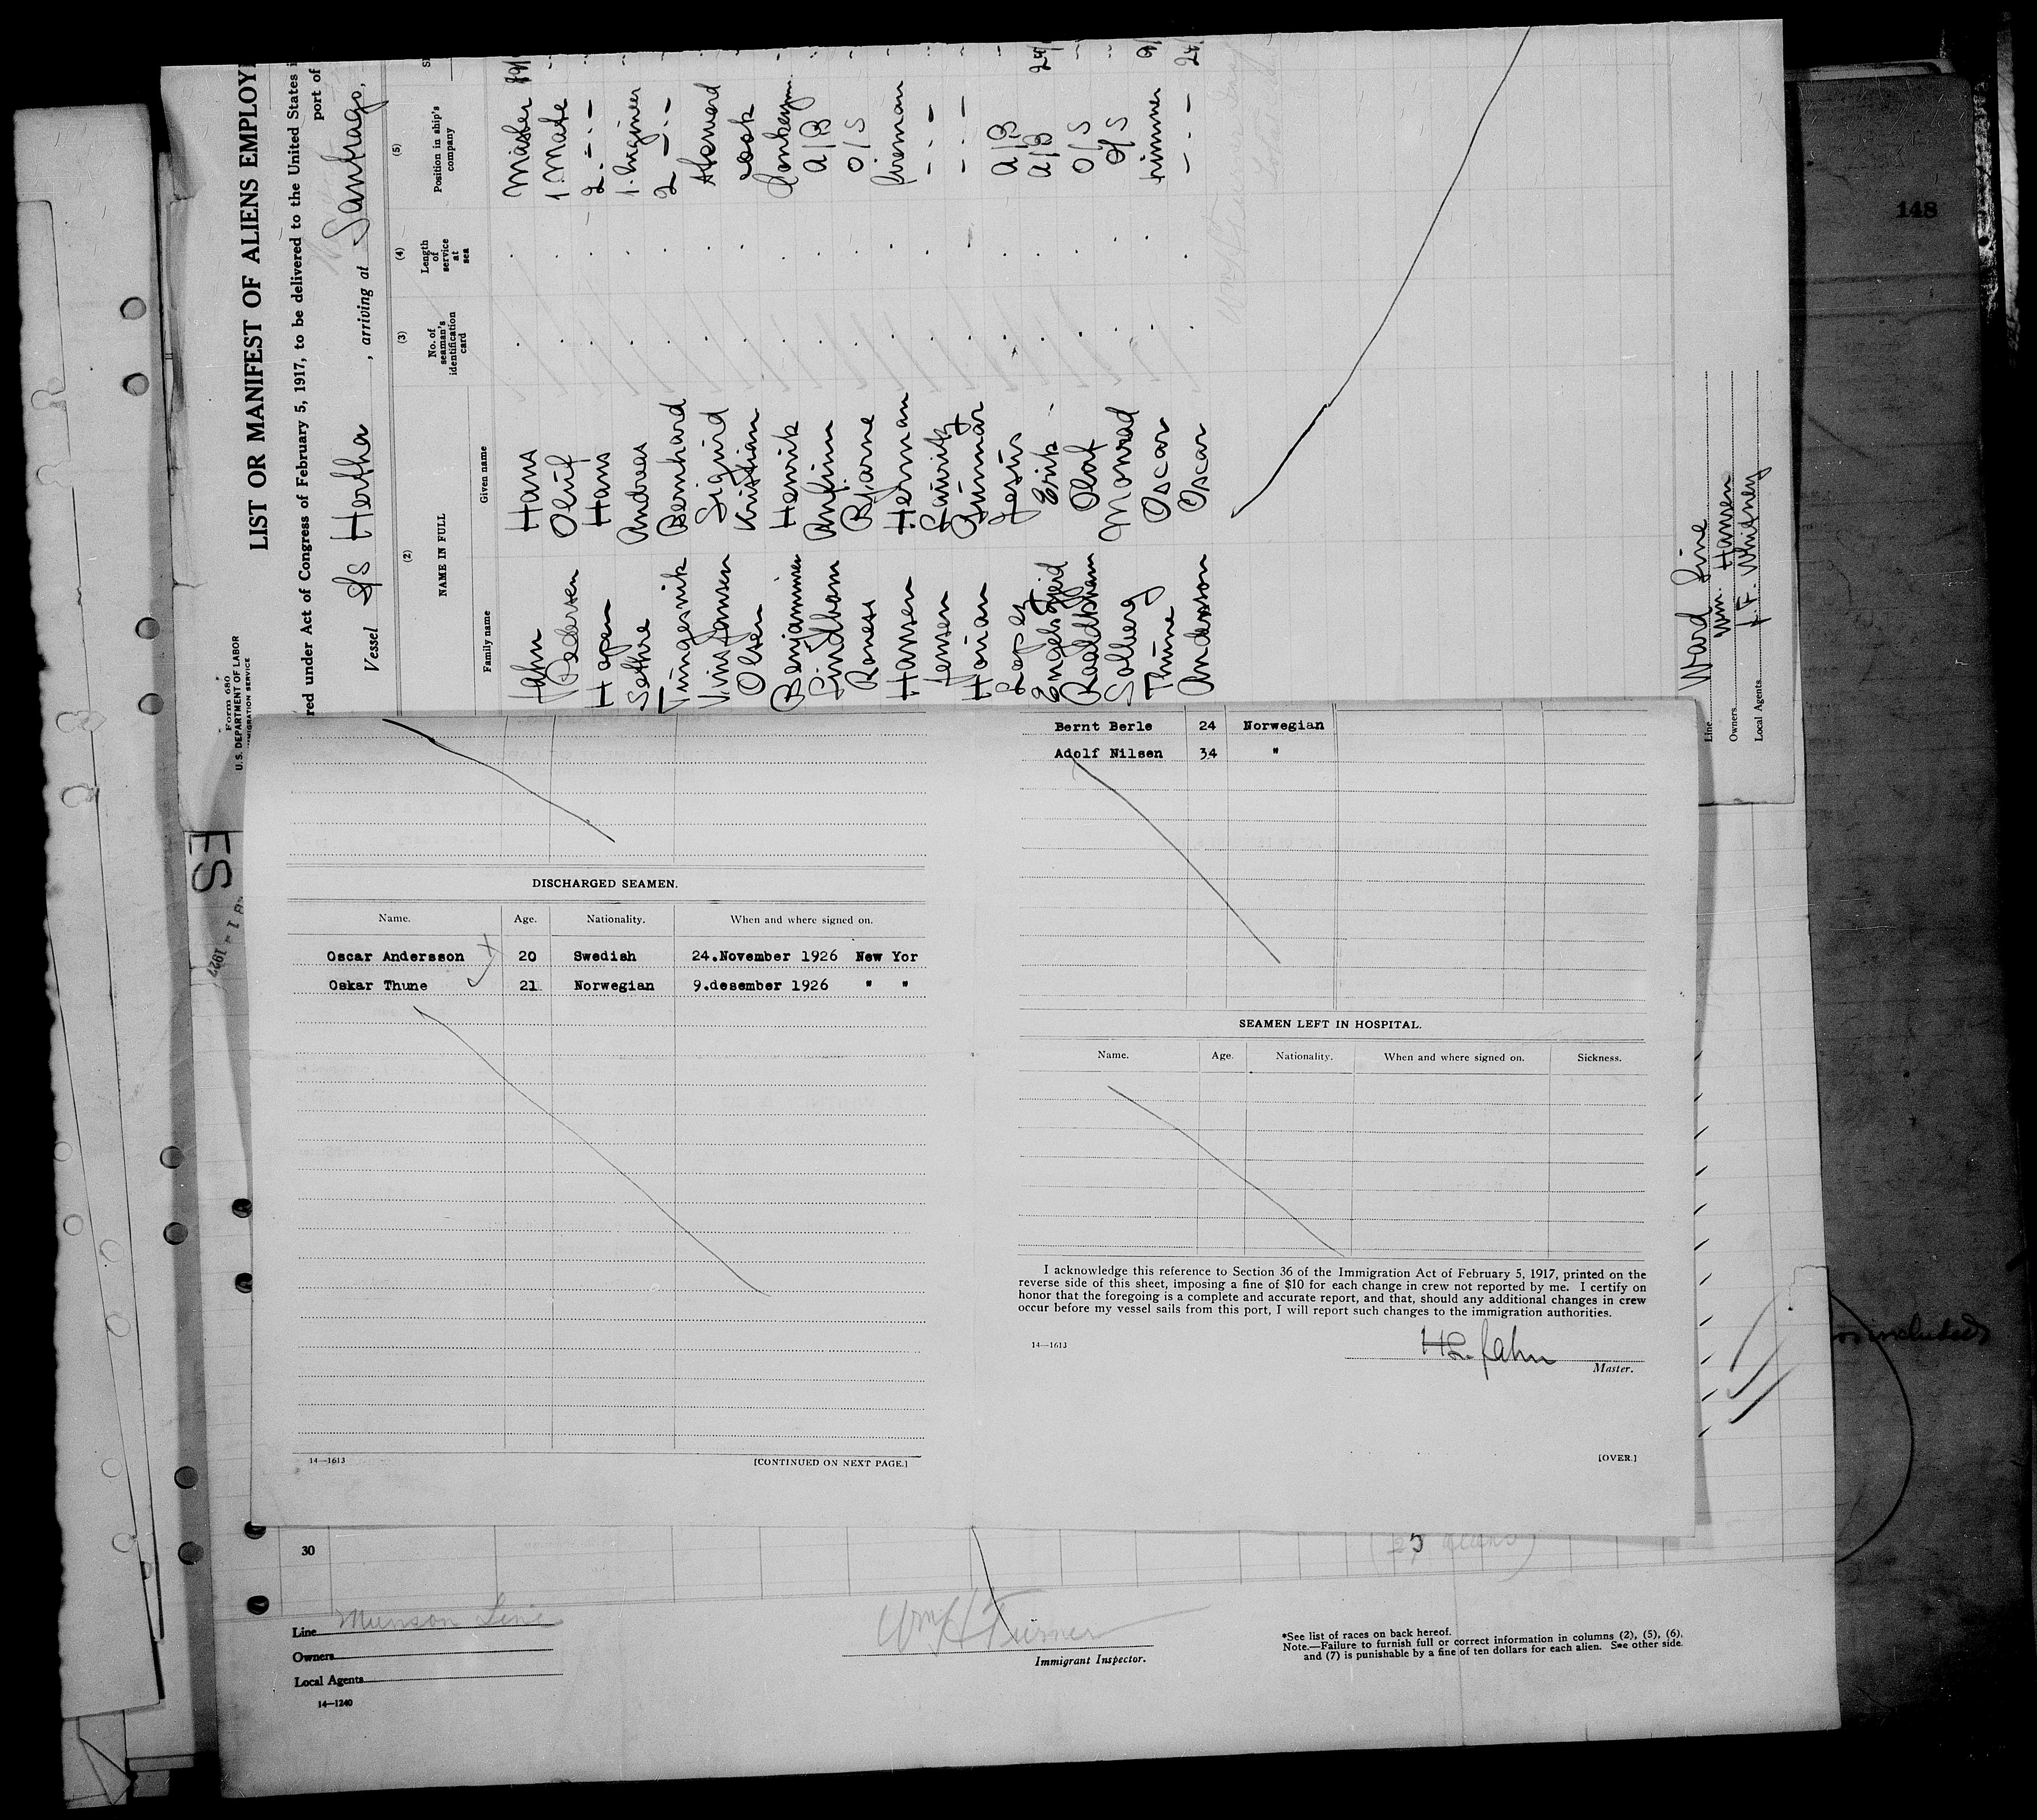 Form 680
U.S. DEPARTMENT OF LABOR
IMMIGRATION SERVICE
LIST OR MANIFEST OF ALIENS EMPLOY
red under Act of Congress of February 5, 1917, to be delivered to the United States i
port of
Vessel S/S Hertha, arriving at Santiago,
(2) (3) (4) (5)
NAME IN FULL No. of seaman's identification card Length of service at sea Position in ship's company
Family name Given name
Jahn Hans Master
Pedersen Oluf 1 Mate
Hopen Hans 2 - " -
Sethre Andreas 1. Engineer
Tungesvik Bernhard 2 - " -
Sigurd Steward
Olsen Kristian cook
Benjaminsen Henrik
Lindham Anfinn A/B
Rones Bjarne O/S
Hansen Herman fireman
Jensen Lauritz - " -
Hovian Gunnar - " -
Lopez Jesus A/B
Erik A/B
Olaf O/S
Solberg Monrad O/S
Thune Oscar trimmer
Andersson Oscar - " -
Line Ward Line
Owners Wm. Hansen
Local Agents J.F. Whitney
148
ES
1927
DISCHARGED SEAMEN.
Name. Age. Nationality. When and where signed on.
Oscar Andersson 20 Swedish 24.November 1926 New Yor
Oskar Thune 21 Norwegian 9.desember 1926 " "
14—1613 [CONTINUED ON NEXT PAGE.]
Bernt Berle 24 Norwegian
Adolf Nilsen 34 "
SEAMEN LEFT IN HOSPITAL.
Name. Age. Nationality. When and where signed on. Sickness.
I acknowledge this reference to Section 36 of the Immigration Act of February 5, 1917, printed on the
reverse side of this sheet, imposing a fine of $10 for each change in crew not reported by me. I certify on
honor that the foregoing is a complete and accurate report, and that, should any additional changes in crew
occur before my vessel sails from this port, I will report such changes to the immigration authorities.
14—1613
H. Jahn
Master.
[OVER.]
included
30
Line Munson Line
Owners
Local Agents
14—1240
Wm H Turner
Immigrant Inspector.
*See list of races on back hereof.
Note.—Failure to furnish full or correct information in columns (2), (5), (6),
and (7) is punishable by a fine of ten dollars for each alien. See other side.